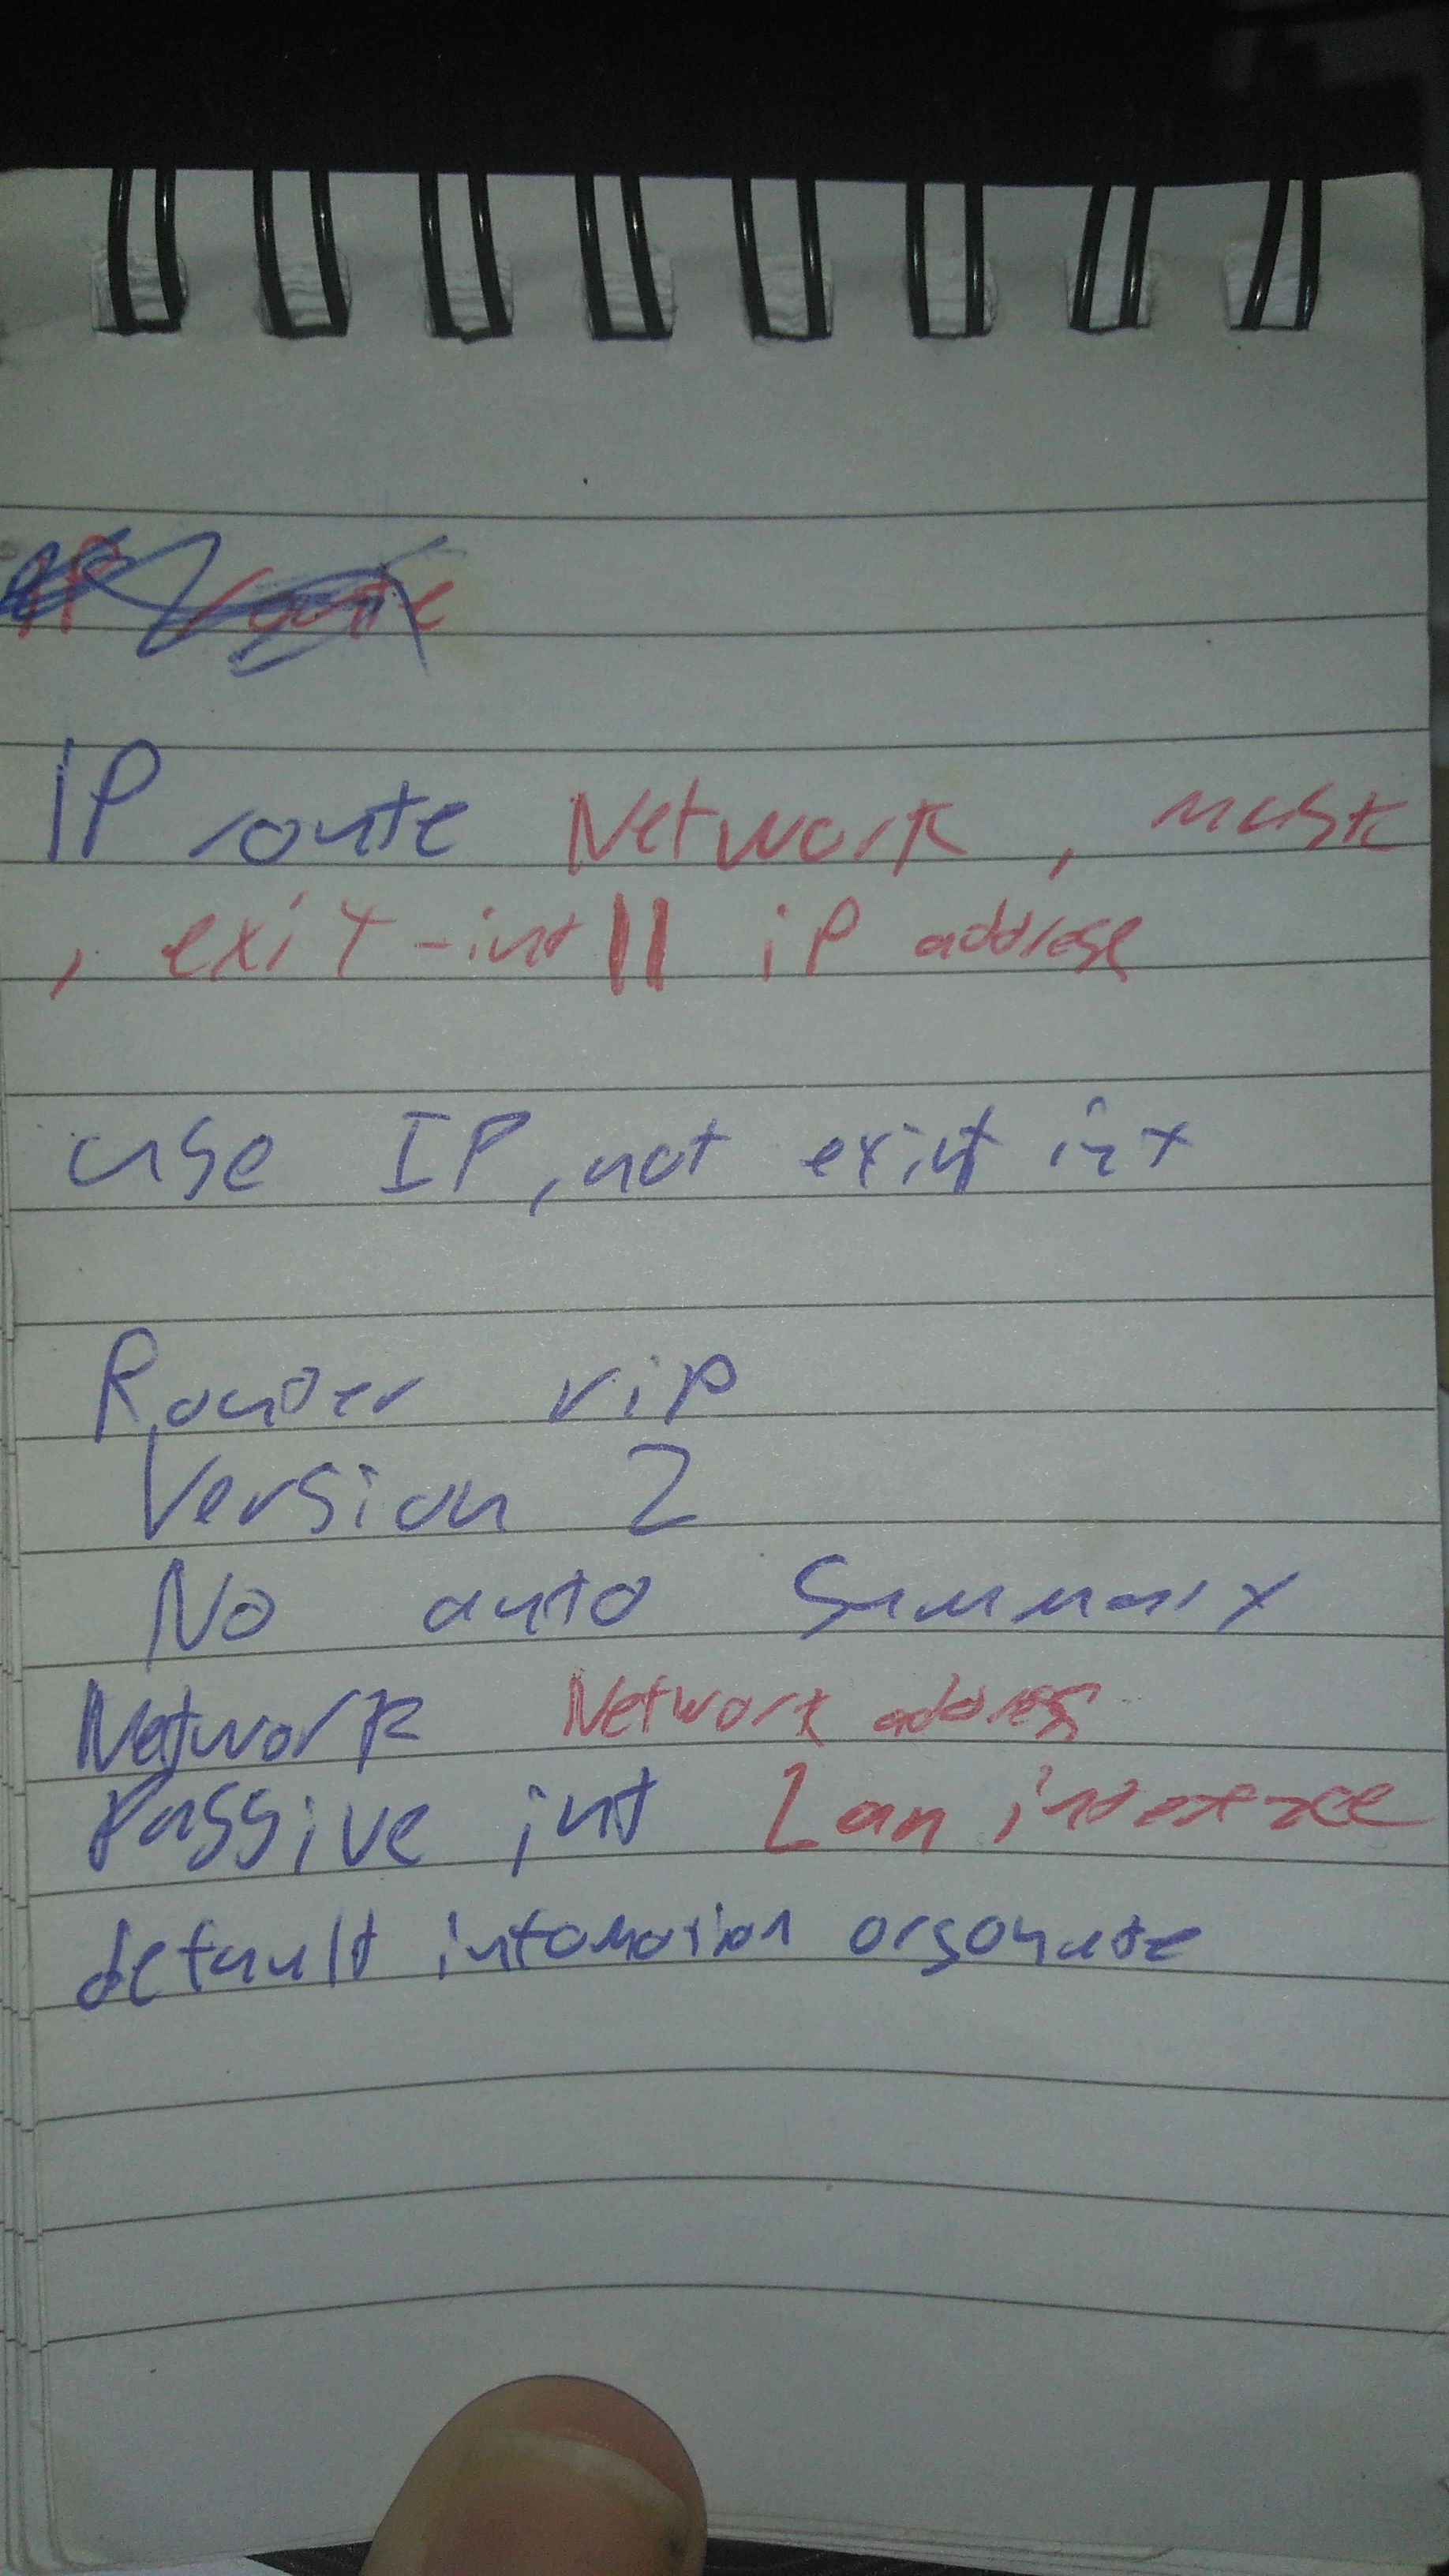 IP route
IP route Network, mask
, exit-int || iP address
use IP, not exist int
Rouder rip
Version 2
No auto Summary
Network Network address
Passive int Lan interface
default information orgonate